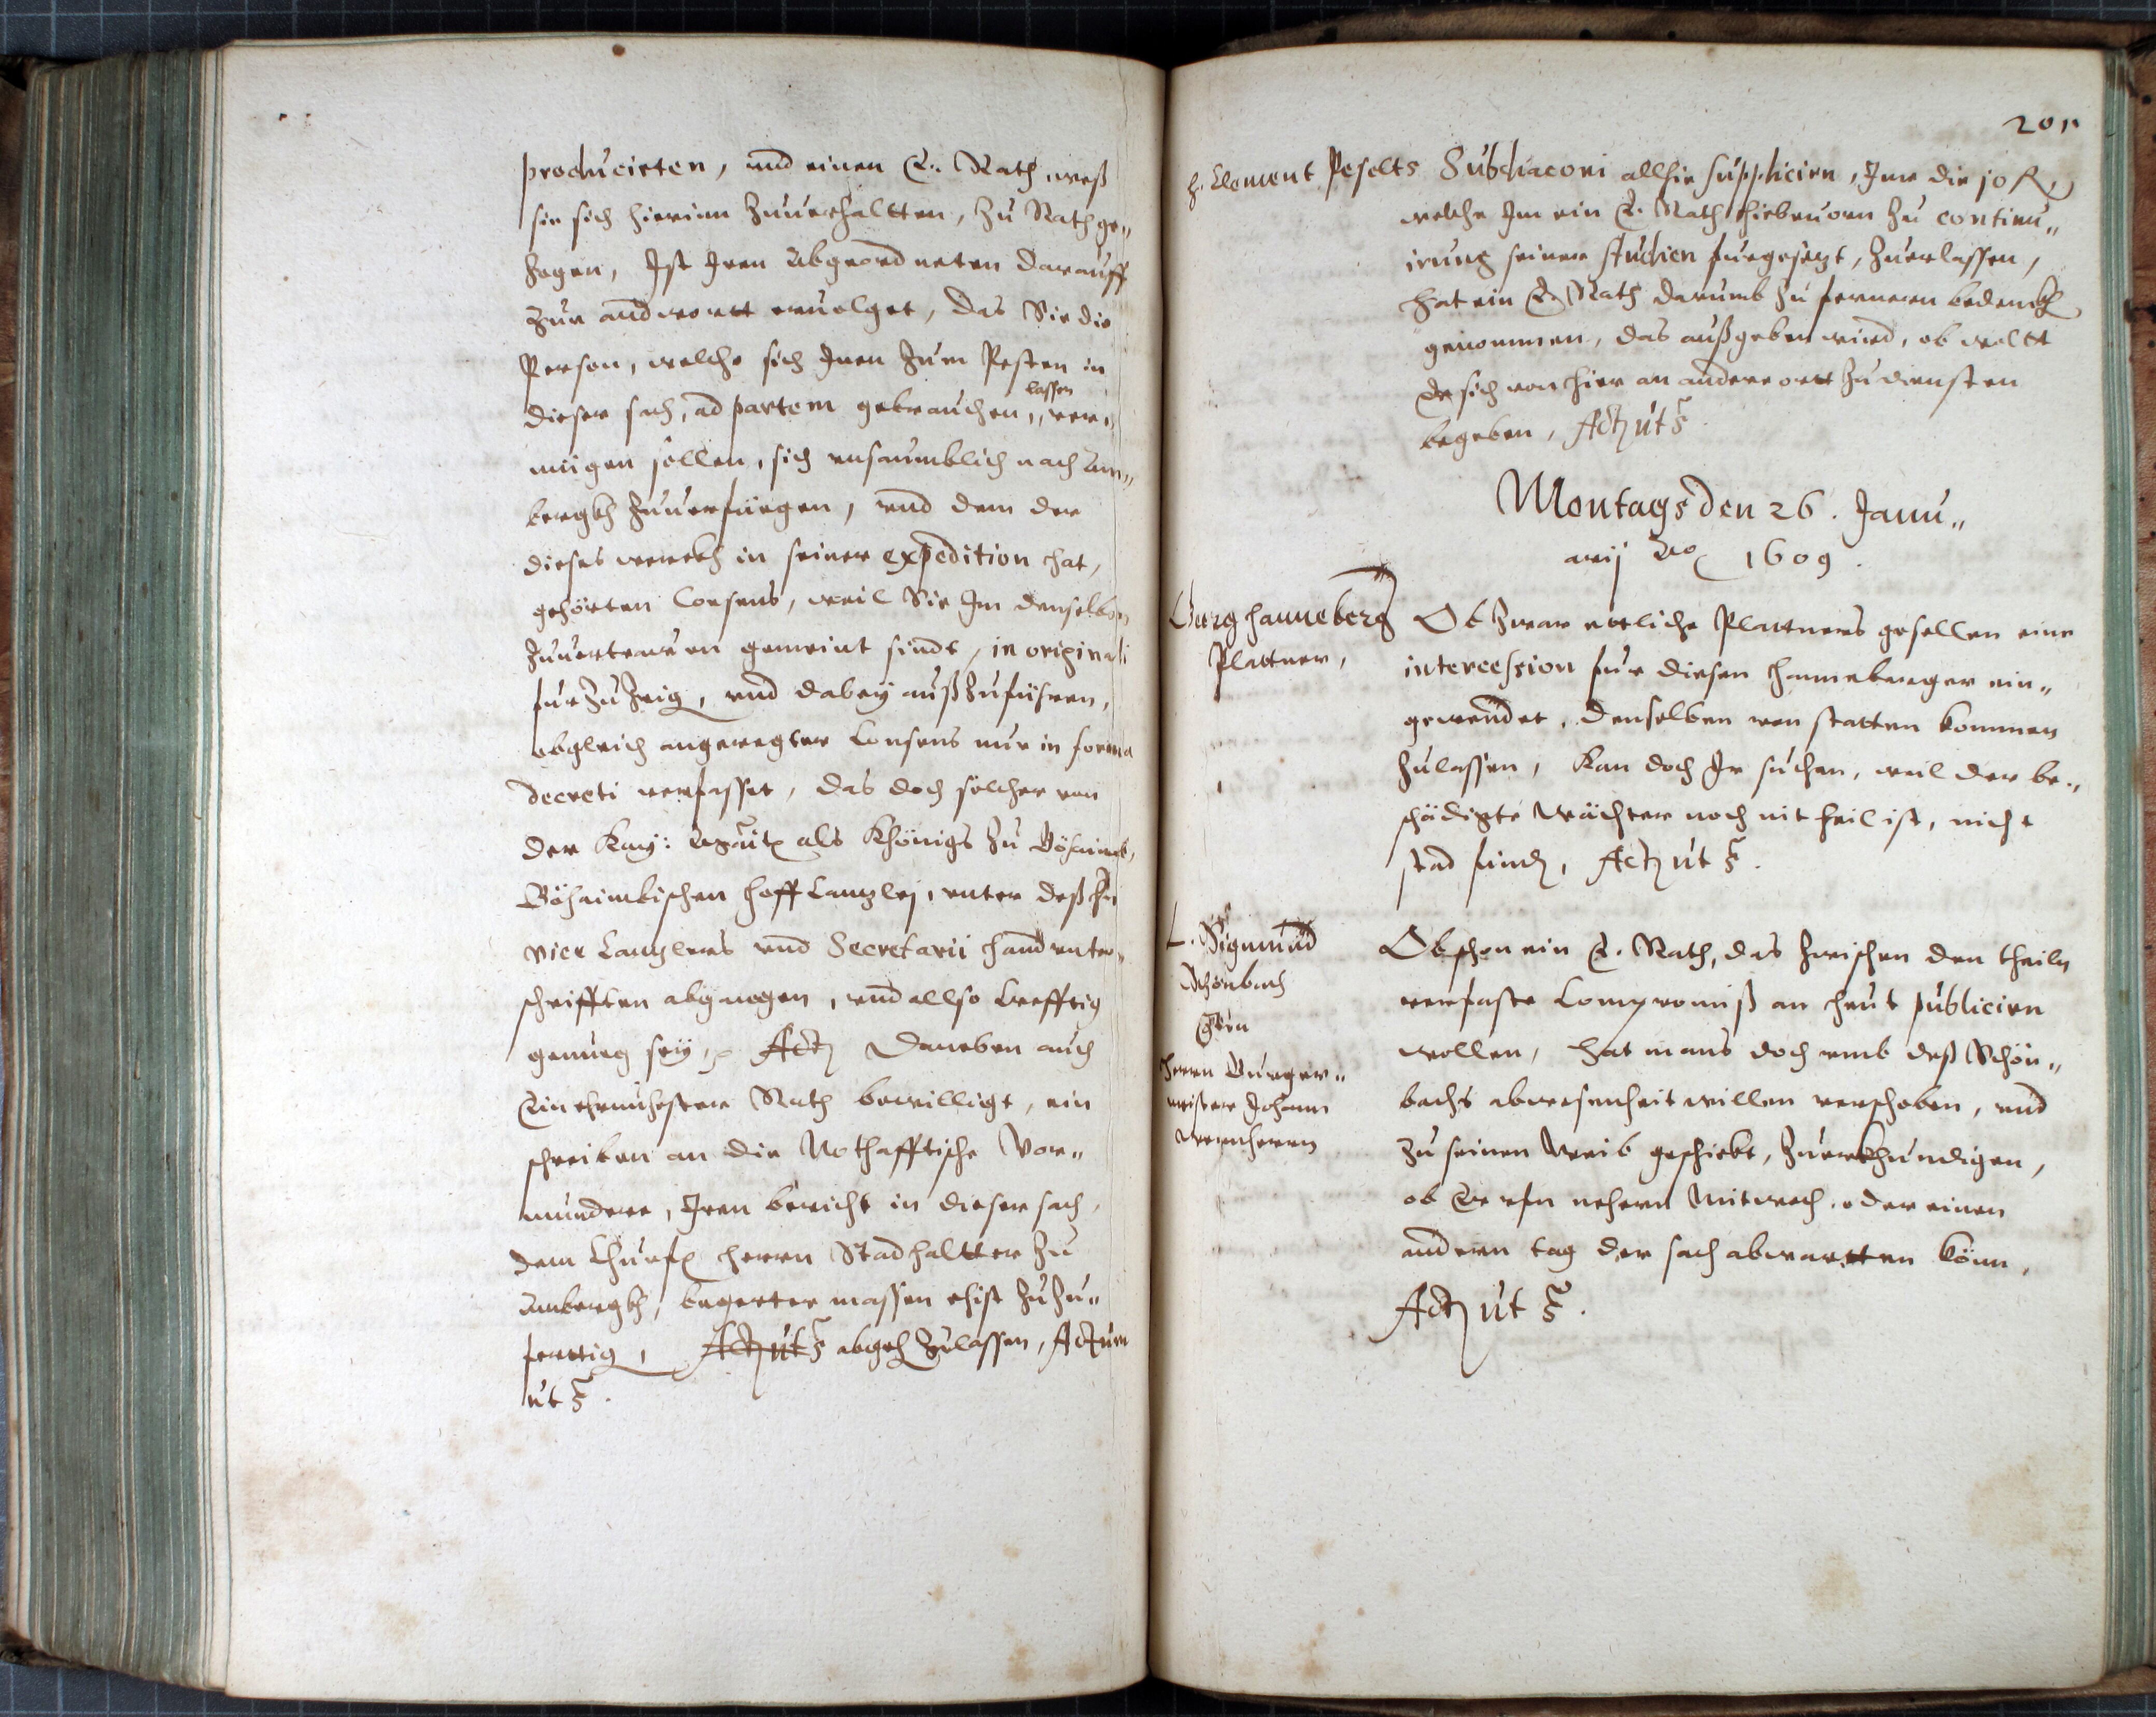 producirten, und einen E. Rath weß
sie sich hierinn zuuerhaltten, zu Rath ge„
zogen, Ist Iren abgeordneten darauff
zur andwortt ervolget, das Sie die
Person, welche sich Inen zum Pesten in
dieser sach, ad partem gebrauchen, lassen ver„
mügen sollen, sich unsaumblich nach Am„
bergkh zuuerfüegen, und dem der
dieses werckh in seiner expedition hat,
gehörten Consens, weil Sie Im denselben
zuuertrawen gemeint sindt, in originali
furzuzeig, und dabey außzuführen,
obgleich angeregter Consens nur in forma
decreti verfasset, das doch solcher von
der Kay: Maytt als Khönigs zu Böhaimb,
Böhaimbischen hoff Canzley, unter deß hn
vice Canzlers und Secretarii hand unter„
schrifften abgangen, und allso krefftig
genueg sey, Act Daneben auch
Ein ehrnuhester Rath bewilligt, ein
schreiben an die Nothafftische Vor„
mündere, Iren bericht in dieser sach,
dem Churf herrn Stadhaltter zu
Ambergkh, begerter massen ehist zuzu„
fertig, Act ut s abgeh zulassen, Actum
ut s.
201
h. Clement Peselts Subdiaconi allhie supplicirn, Ime die 50 R
welche Im ein E. Rath hiebeuorn zu continu„
irung seiner studien furgesezt, zuerlassen,
hat ein E. Rath darumb zu fernern bedenckh
genommen, das außgeben wird, ob wollt
Er sich von hier an andere ortt zu diensten
begeben, Act ut s.
Montags den 26. Janu„
arij Ao 1609.
Georg hanneberg
Plattner,
Ob zwar ettliche Plattners gesellen eine
intercession für diesen hanneberger ein„
gewendet, denselben von statten kommen
zulassen, Kan doch Ir suchen, weil der be„
schädigte Wächter noch nit heil ist, nicht
stad find, Act ut s.
L. Sigmund
Schönbach
Gen
herrn Burger„
meister Johann
Wernherrn
Obschon ein E. Rath, das zwischen den theiln
verfaste Compromiß an heut publicirn
wollen, hat mans doch umb deß Schön„
bachs abwesenheit willen verschoben, und
zu seinen Weib geschickt, zuerkhundigen,
ob Er ufn nehern Mitwoch, oder einen
andern tag der sach abwartten könn,
Act ut s.